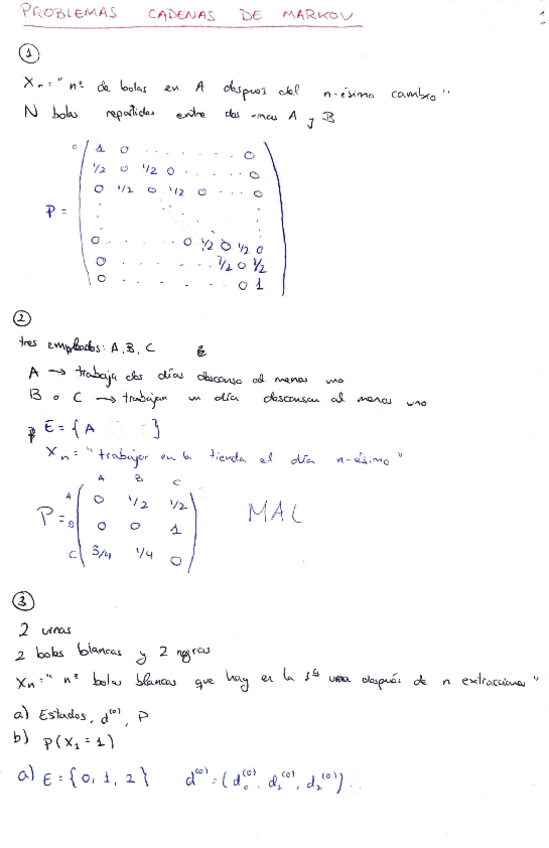 PROBLEMAS CADENAS DE MARKOV
1
Xn = "nº de bolas en A después del n-ésimo cambio"
N bolas repartidas entre dos urnas A y B
0 1 0 . . . . . . . . 0
1/2 0 1/2 0 . . . . . 0
0 1/2 0 1/2 0 . . . 0
P =
0 . . . . . . 0 1/2 0 1/2 0
0 . . . . . . . 1/2 0 1/2
0 . . . . . . . . 0 1
2
tres empleados: A, B, C
A → trabaja dos días descansa al menos uno
B o C → trabajan un día descansan al menos uno
E = { A }
Xn = "trabajar en la tienda el día n-ésimo"
A B C
A 0 1/2 1/2
P = B 0 0 1 MAL
C 3/4 1/4 0
3
2 urnas
2 bolas blancas y 2 negras
Xn = "nº bolas blancas que hay en la 1ª urna después de n extracciones"
a) Estados, d^(0), P
b) P(X1 = 1)
a) E = {0, 1, 2} d^(0) = (d0^(0), d1^(0), d2^(0)).